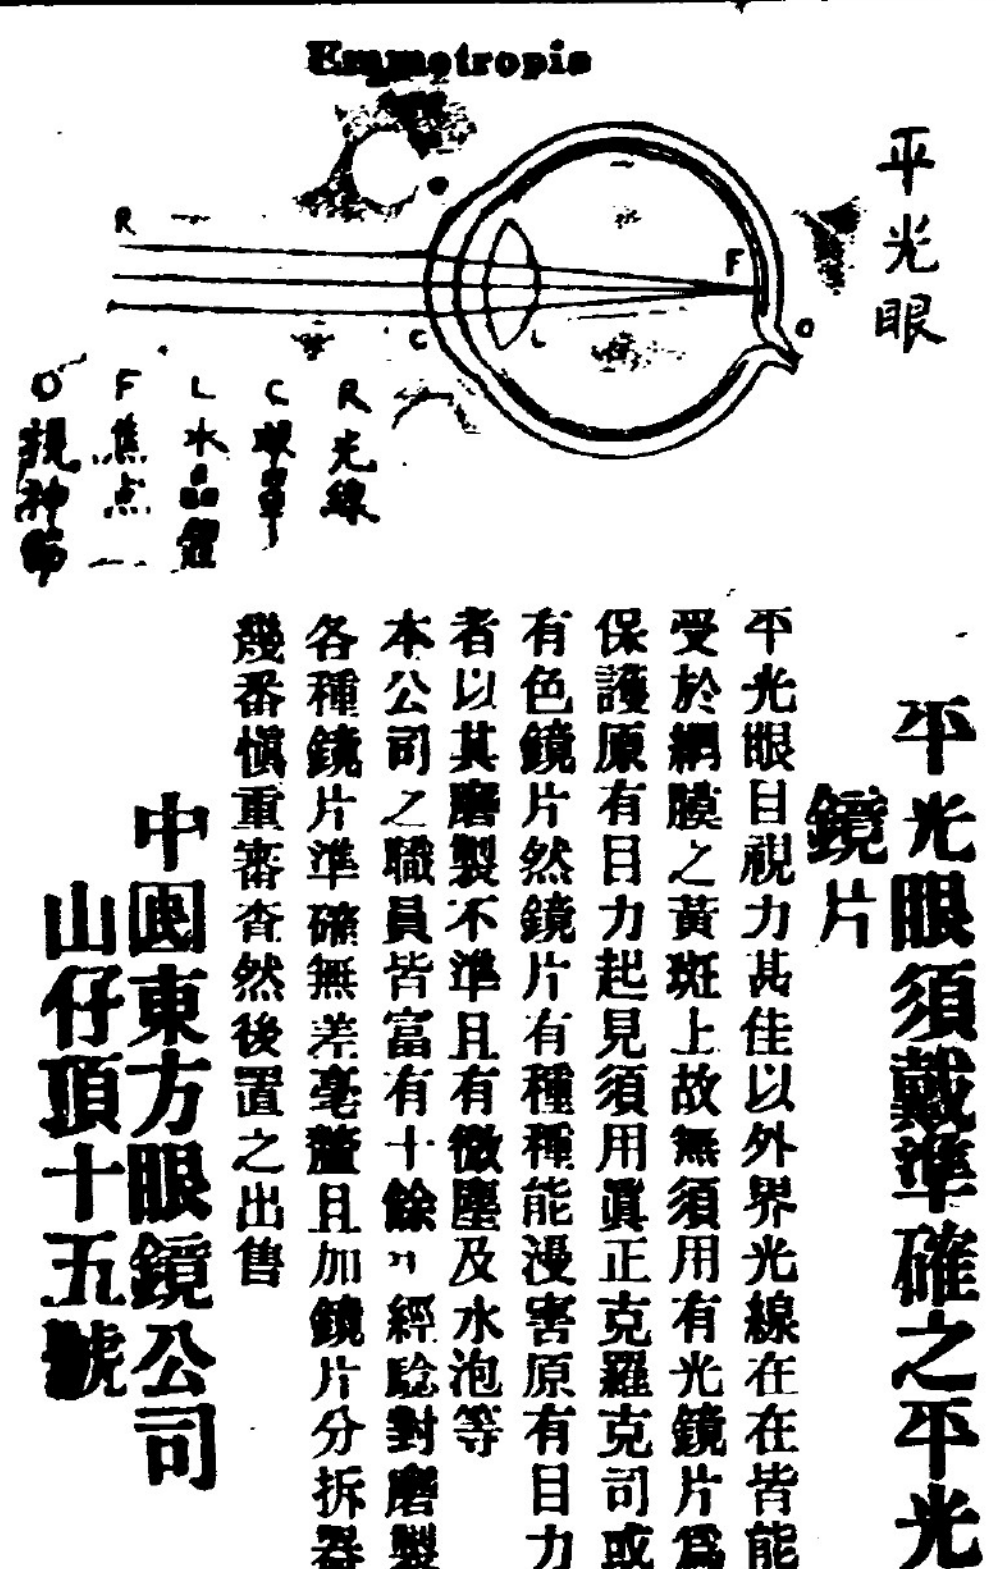 Emmetropia
平光眼
R
C
L
F
O
R 光線
C 眼罩
L 水晶體
F 焦点
O 視神節
平光眼須戴準確之平光
鏡片
平光眼目視力甚佳以外界光線在在皆能
受於網膜之黃斑上故無須用有光鏡片爲
保護原有目力起見須用眞正克羅克司或
有色鏡片然鏡片有種種能漫害原有目力
者以其磨製不準且有微塵及水泡等
本公司之職員皆富有十餘年經騐對磨製
各種鏡片準確無差毫釐且加鏡片分拆器
幾番慎重審查然後置之出售
中國東方眼鏡公司
山仔頂十五號